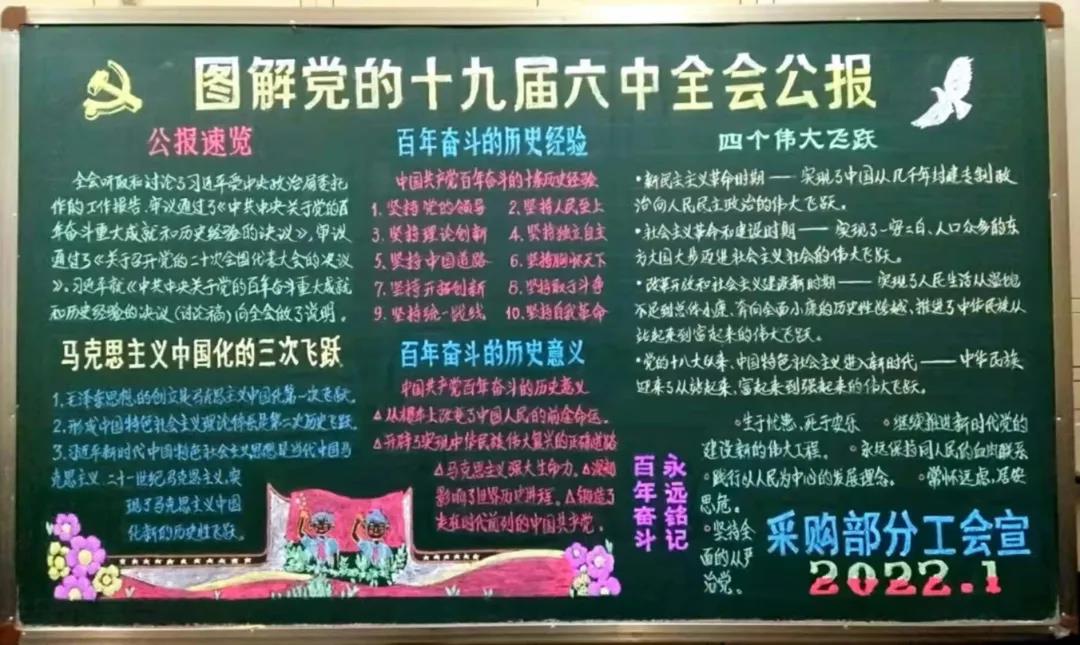 图解党的十九届六中全会公报
公报速览
全会听取和讨论了习近平受中央政治局委托
作的工作报告,审议通过了《中共中央关于党的百
年奋斗重大成就和历史经验的决议》,审议
通过了《关于召开党的二十次全国代表大会的决议
》。习近平就《中共中央关于党的百年奋斗重大成就
和历史经验的决议(讨论稿)向全会做了说明。
马克思主义中国化的三次飞跃
1.毛泽东思想的创立是马克思主义中国化第一次飞跃。
2.形成中国特色社会主义理论体系是第二次历史飞跃。
3.习近平新时代中国特色社会主义思想是当代中国马
克思主义、二十一世纪马克思主义,实
现了马克思主义中国
化新的历史性飞跃。
百年奋斗的历史经验
中国共产党百年奋斗的十条历史经验
1.坚持党的领导 2.坚持人民至上
3.坚持理论创新 4.坚持独立自主
5.坚持中国道路 6.坚持胸怀天下
7.坚持开拓创新 8.坚持敢于斗争
9.坚持统一战线 10.坚持自我革命
百年奋斗的历史意义
中国共产党百年奋斗的历史意义
△从根本上改变了中国人民的前途命运。
△开辟了实现中华民族伟大复兴的正确道路
△马克思主义强大生命力。△深刻
影响了世界历史进程。△锻造了
走在时代前列的中国共产党。
四个伟大飞跃
•新民主主义革命时期——实现了中国从几千年封建专制政
治向人民民主政治的伟大飞跃。
•社会主义革命和建设时期——实现了一穷二白、人口众多的东
方大国大步迈进社会主义社会的伟大飞跃。
•改革开放和社会主义建设新时期——实现了人民生活从温饱
不足到总体小康、奔向全面小康的历史性跨越,推进了中华民族从
站起来到富起来的伟大飞跃。
•党的十八大以来,中国特色社会主义进入新时代——中华民族
迎来了从站起来、富起来到强起来的伟大飞跃。
永远铭记
百年奋斗
◦生于忧患,死于安乐 ◦继续推进新时代党的
建设新的伟大工程。 ◦永远保持同人民的血肉联系
◦践行以人民为中心的发展理念。 ◦常怀远虑,居安
思危。
◦坚持全
面的从严
治党。
采购部分工会宣
2022.1